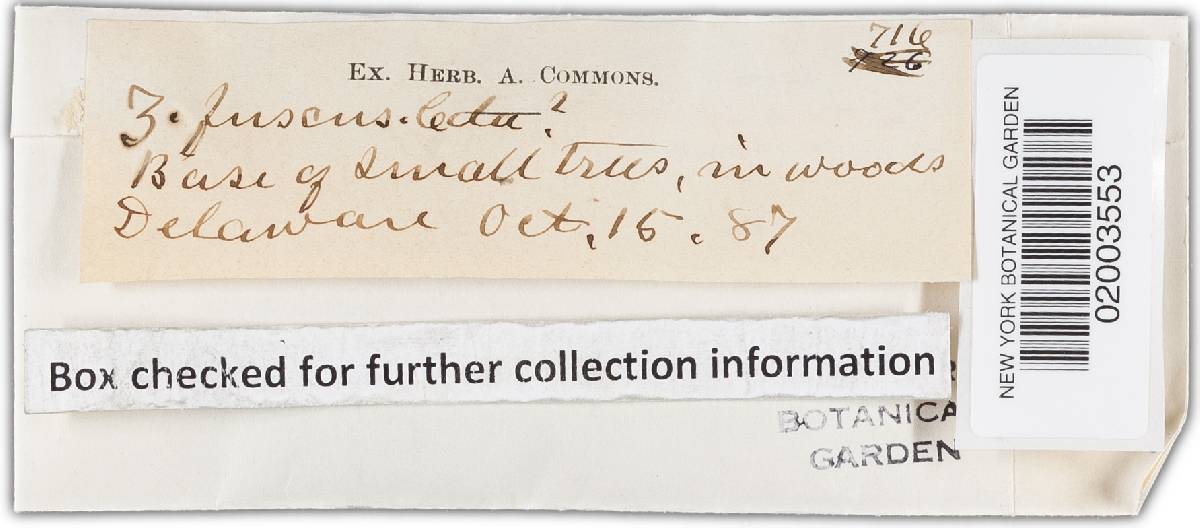 716
726
Ex. Herb. A. Commons.
Z. fuscus.
Base of small trees, in woods
Delaware Oct. 15. 87
NEW YORK BOTANICAL GARDEN
02003553
Box checked for further collection information
BOTANICA
GARDEN